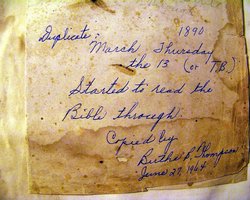 Duplicate: 1890
March Thursday
the 13 (or T.B.)
Started to read the
Bible through
Copied by
Bertha L. Thompson
June 27, 1964